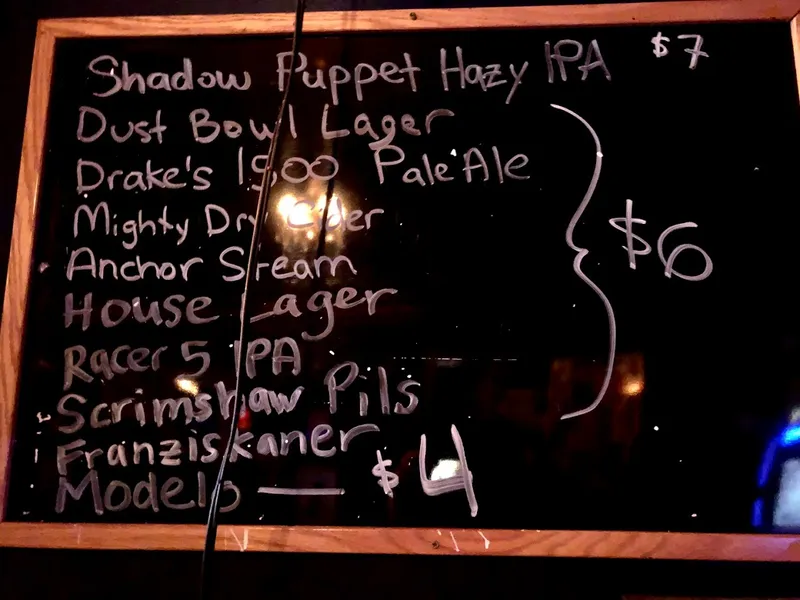 Shadow Puppet Hazy IPA $7
Dust Bowl Lager
Drake's 1500 Pale Ale
Mighty Dry Cider
Anchor Steam
House Lager
$6
Racer 5 IPA
Scrimshaw Pils
Franziskaner
Modelo — $4